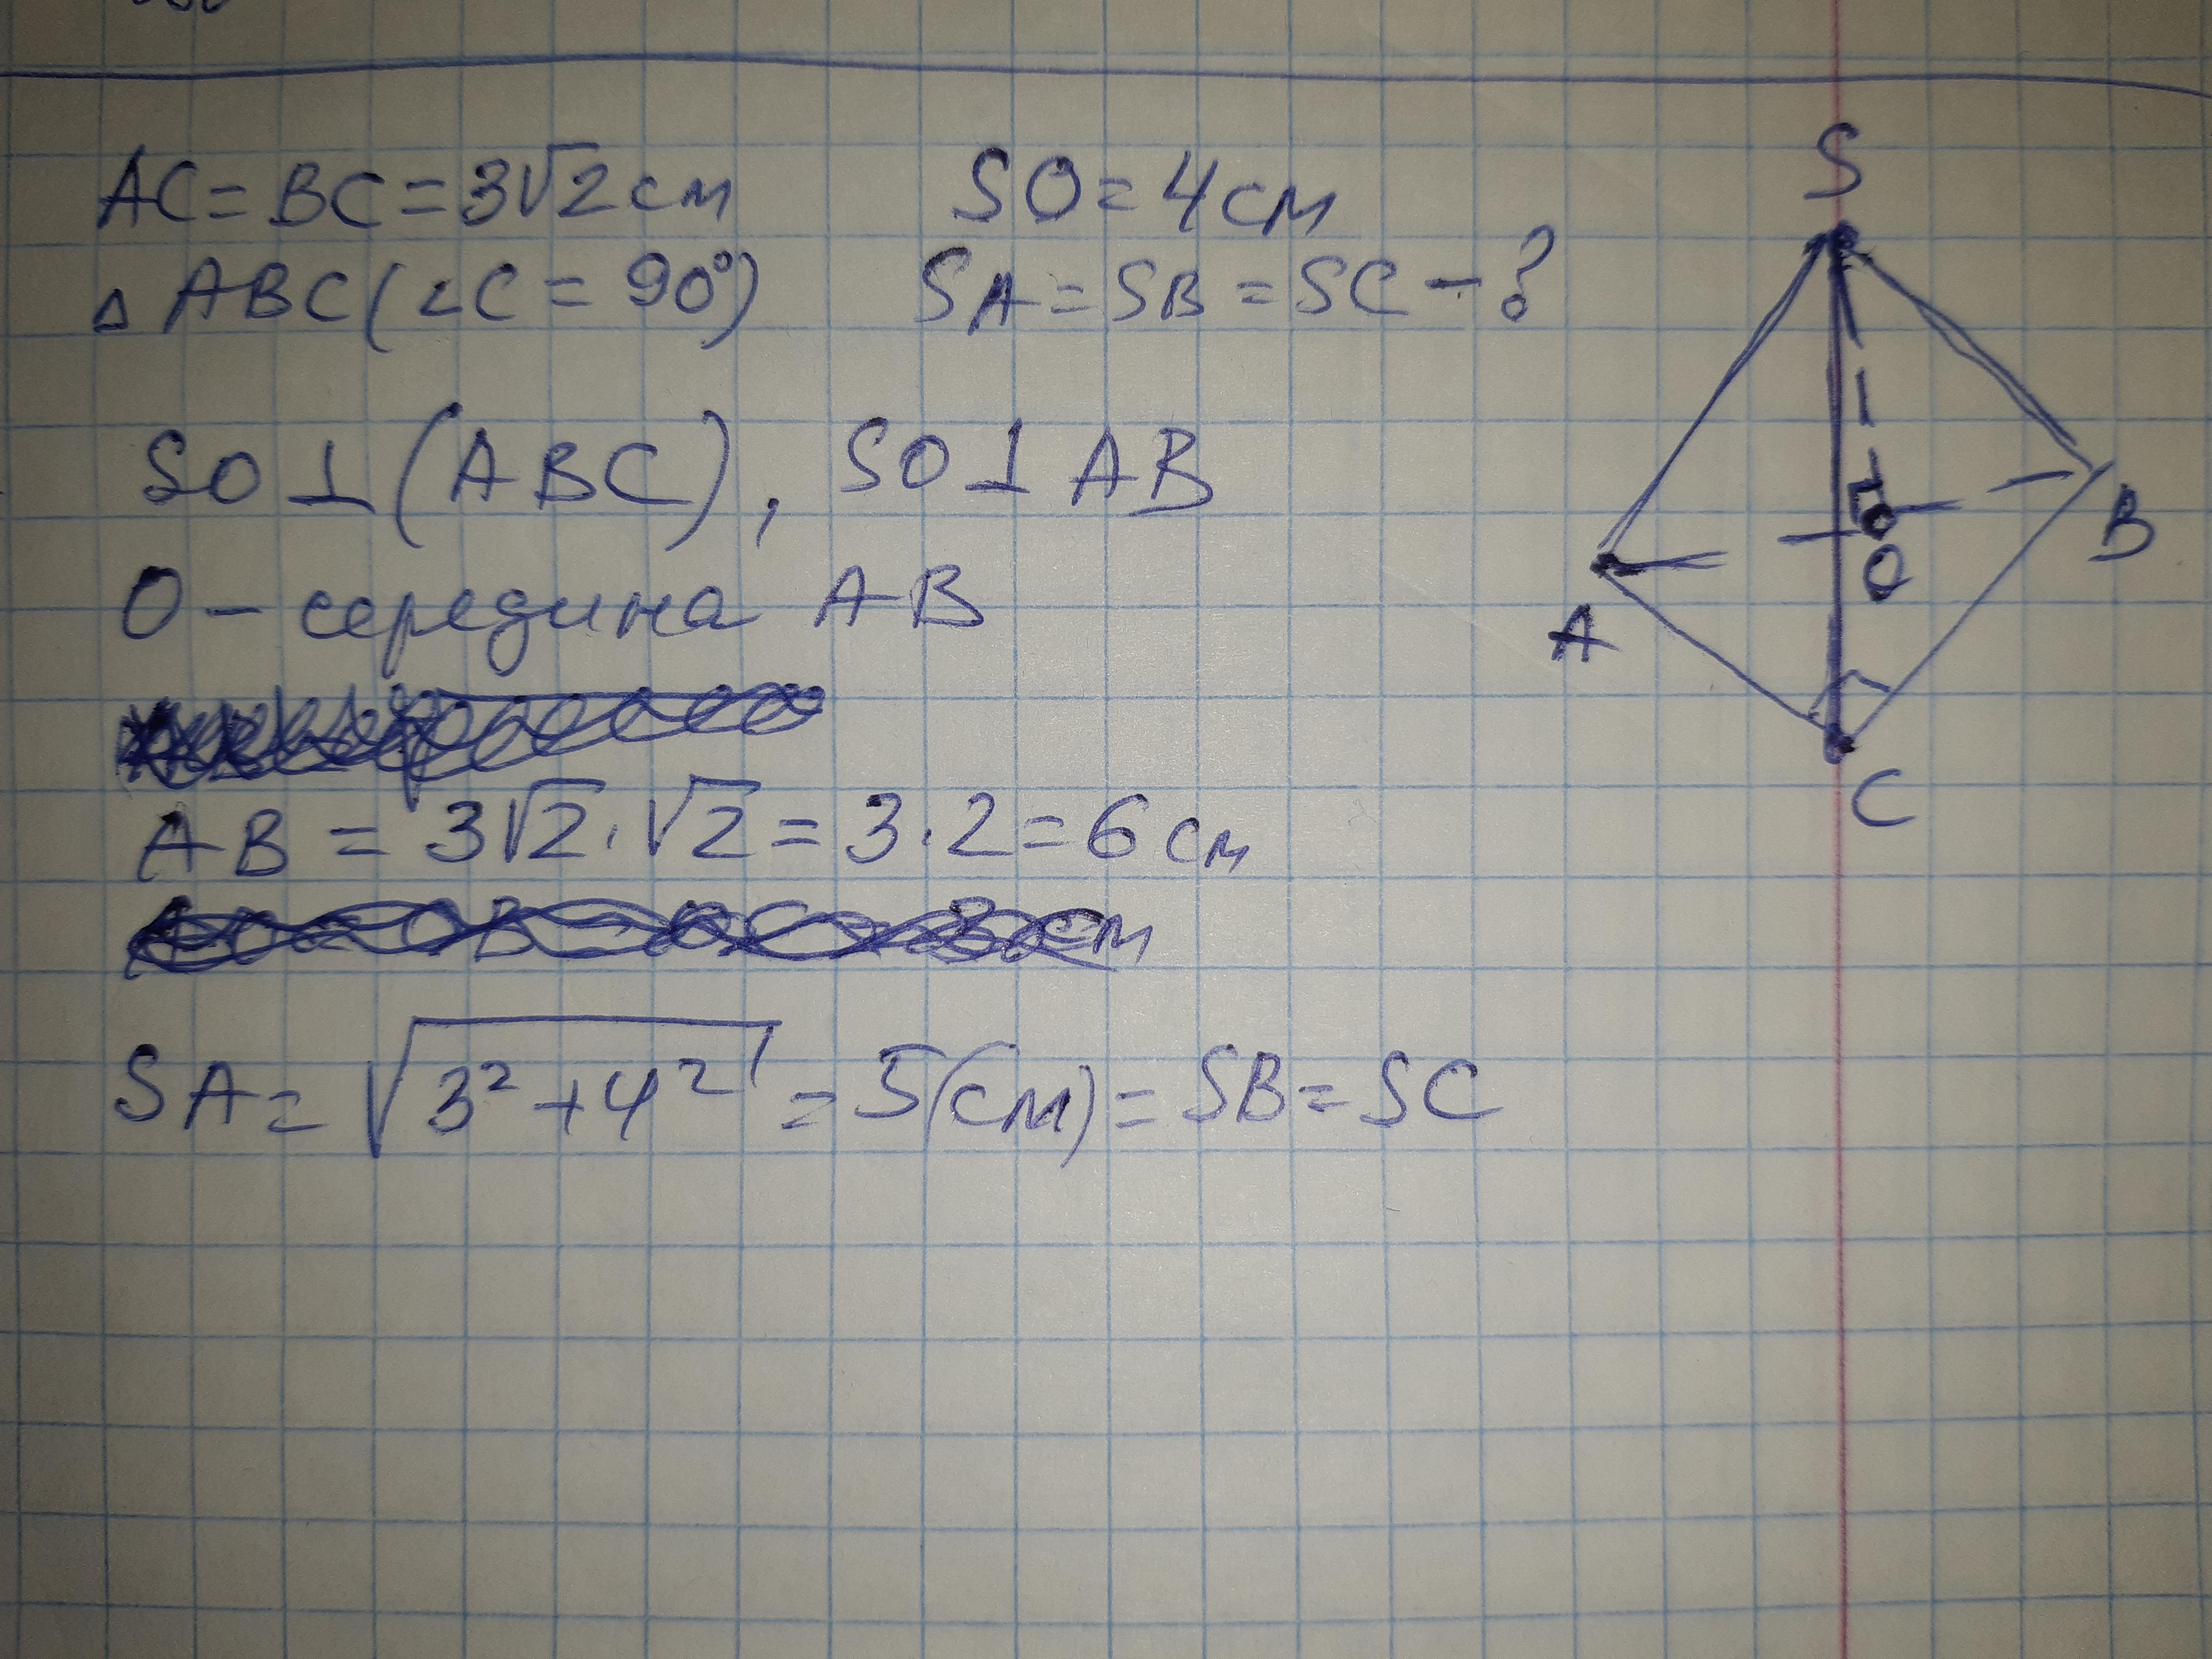 AC = BC = 3√2 см SO = 4 см
△ ABC (∠C = 90°) SA = SB = SC - ?
SO ⊥ (ABC), SO ⊥ AB
O - середина AB
AB = 3√2 · √2 = 3 · 2 = 6 см
SA = √(3² + 4²) = 5 (см) = SB = SC
S
A
B
O
C